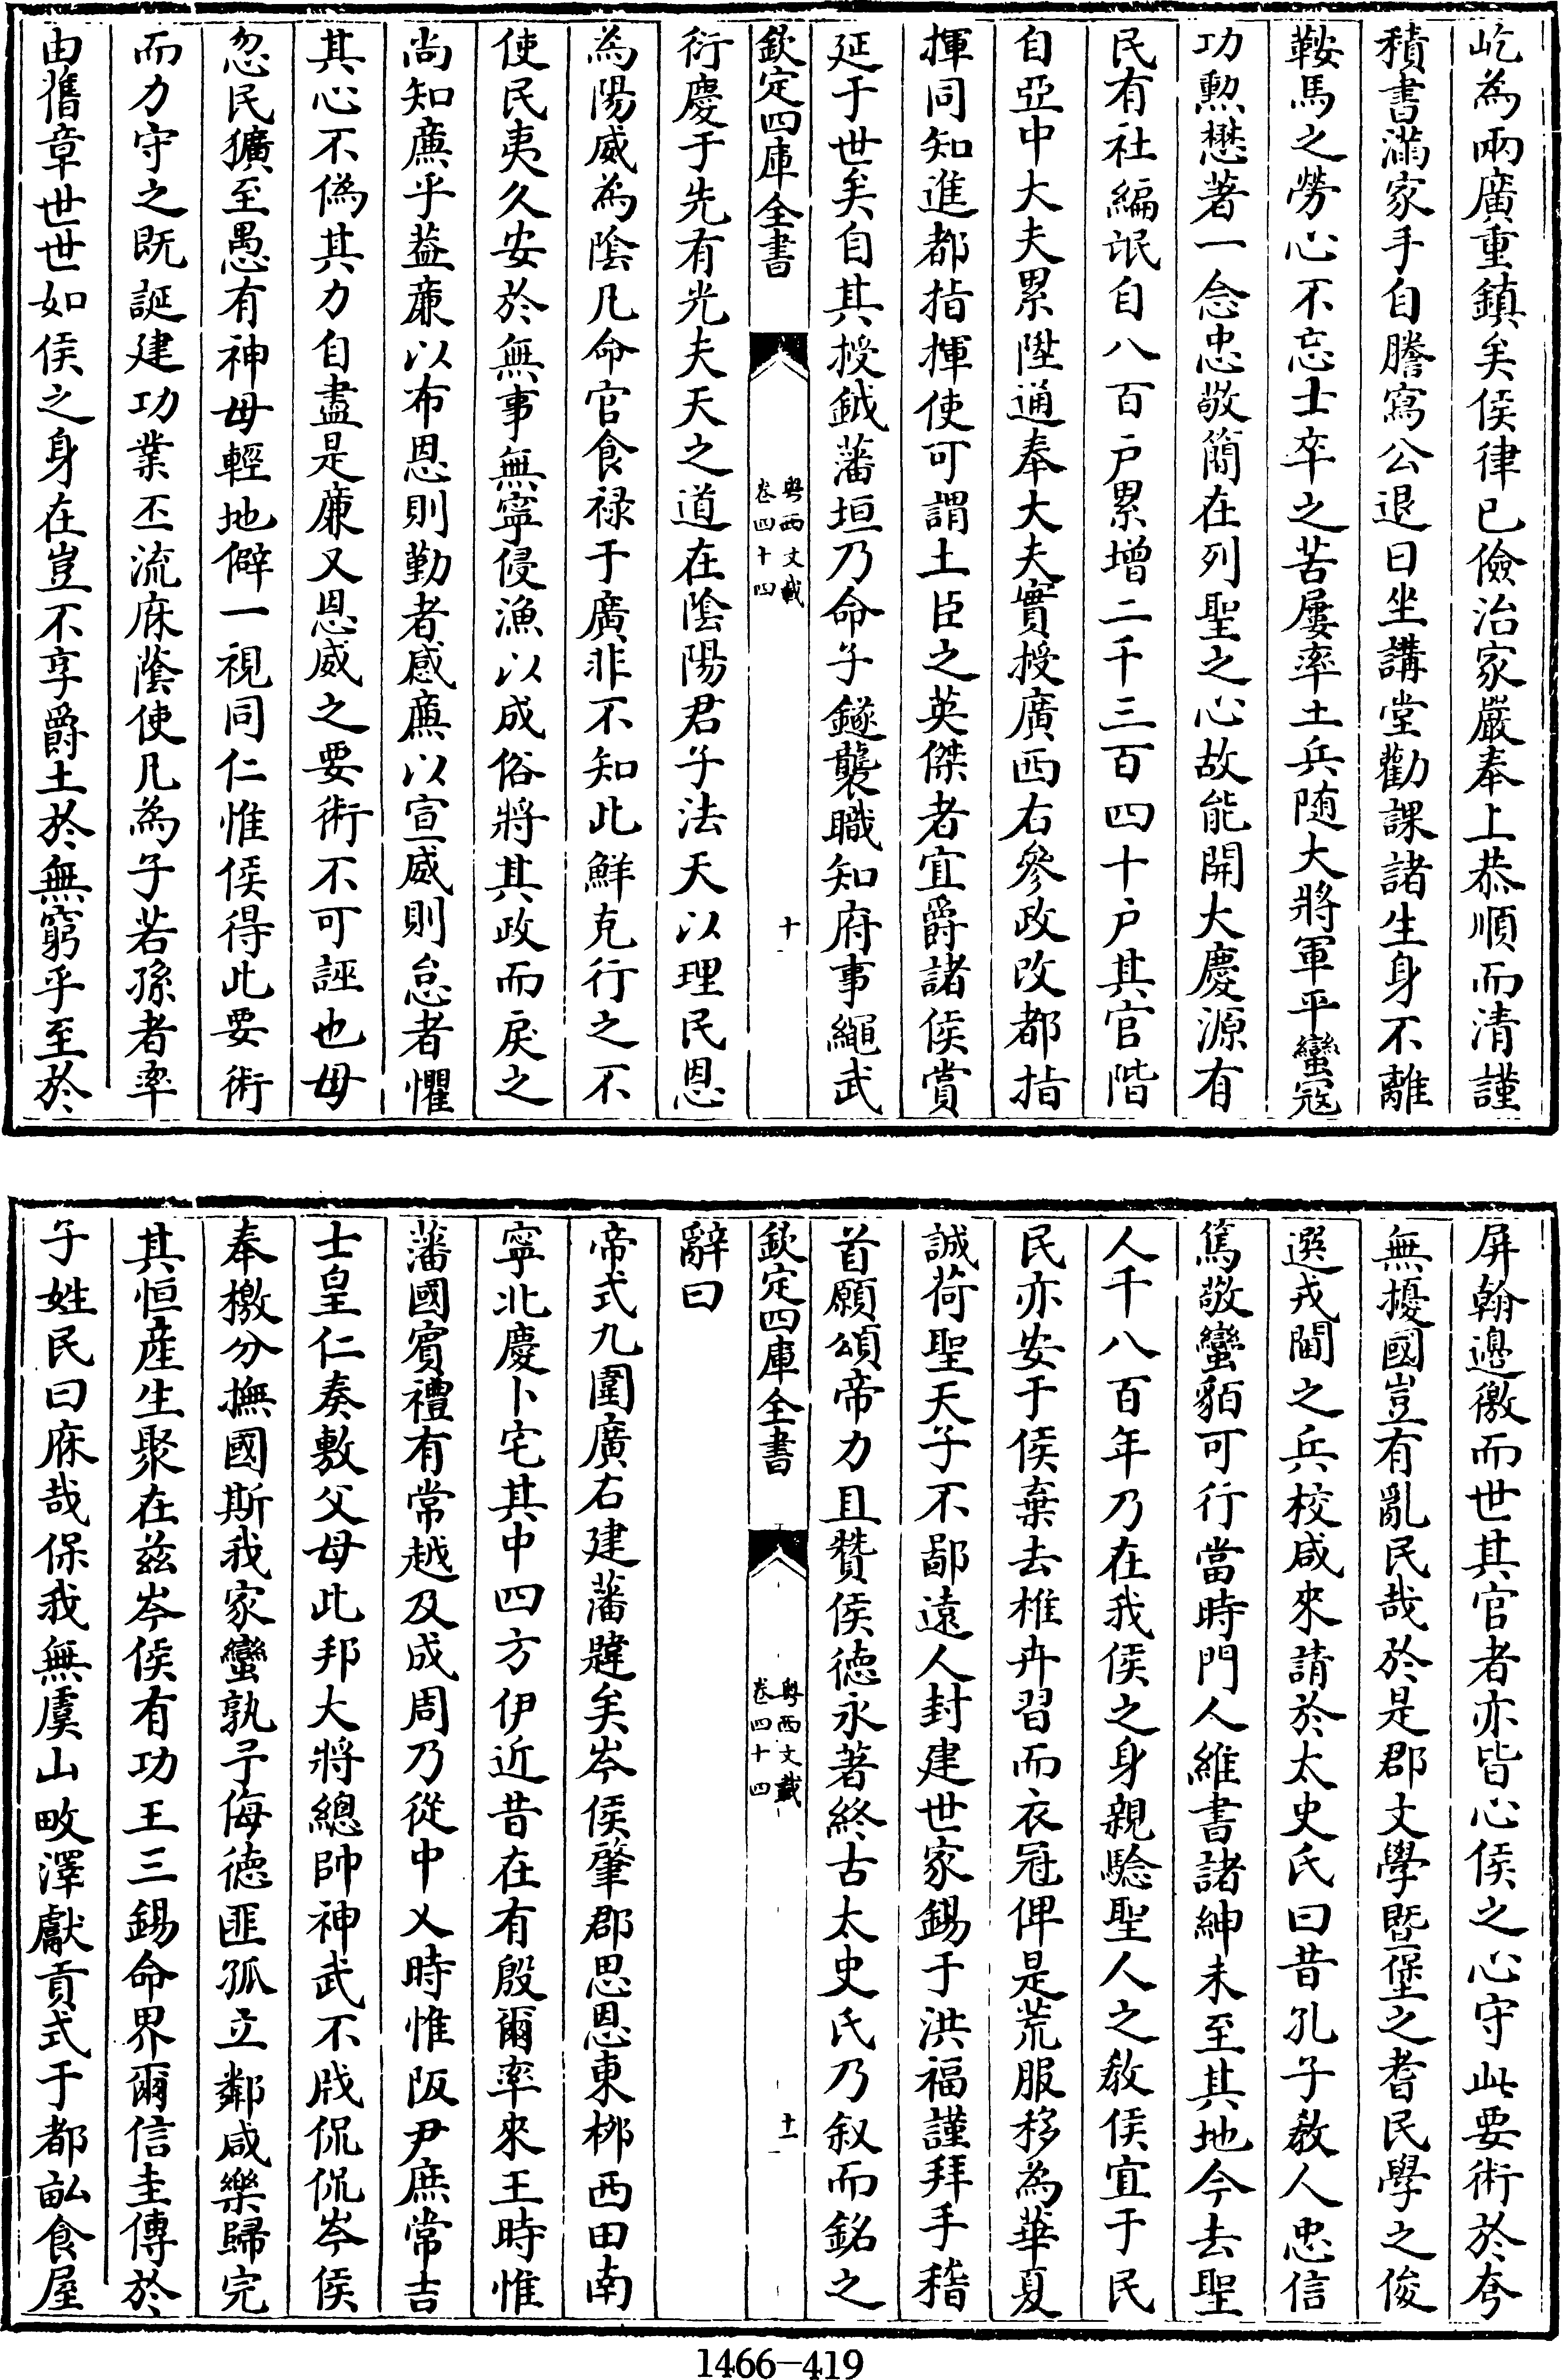 屹為兩廣重鎮矣侯律已儉治家嚴奉上恭順而清謹
積書滿家手自謄寫公退日坐講堂勸課諸生身不離
鞍馬之勞心不忘士卒之苦屢率土兵随大將軍平蠻冦
功勲懋著一念忠敬簡在列聖之心故能開大慶源有
民有社編氓自八百户累增二千三百四十户其官階
自亞中大夫累陞通奉大夫實授廣西右參政改都指
揮同知進都指揮使可謂土臣之英傑者宜爵諸侯賞
延于世矣自其授鉞藩垣乃命子鐩襲職知府事繩武
欽定四庫全書
粤西文載
卷四十四
十
衍慶于先有光夫天之道在陰陽君子法天以理民恩
為陽威為陰凡命官食禄于廣非不知此鮮克行之不
使民夷久安於無事無寧侵漁以成俗將其政而戾之
尚知亷乎葢亷以布恩則勤者感亷以宣威則怠者懼
其心不偽其力自盡是亷又恩威之要術不可誣也毋
忽民獷至愚有神毋輕地僻一視同仁惟侯得此要術
而力守之既誕建功業丕流庥蔭使凡為子若孫者率
由舊章世世如侯之身在豈不享爵土於無窮乎至於
屏翰邊徼而世其官者亦皆心侯之心守此要術於夸
無擾國豈有亂民哉於是郡文學暨堡之耆民學之俊
選戎閫之兵校咸來請於太史氏曰昔孔子教人忠信
篤敬蠻貊可行當時門人維書諸紳未至其地今去聖
人千八百年乃在我侯之身親驗聖人之教侯宜于民
民亦安于侯棄去椎卉習而衣冠俾是荒服移為華夏
誠荷聖天子不鄙遠人封建世家錫于洪福謹拜手稽
首願頌帝力且贊侯徳永著終古太史氏乃叙而銘之
欽定四庫全書
粤西文載
卷四十四
十一
辭曰
帝式九圍廣右建藩韙矣岑侯肇郡思恩東栁西田南
寧北慶卜宅其中四方伊近昔在有殷爾率來王時惟
藩國賓禮有常越及成周乃從中乂時惟阪尹庶常吉
士皇仁奏敷父母此邦大將總帥神武不戕侃侃岑侯
奉檄分撫國斯我家蠻孰予侮徳匪孤立鄰咸樂歸完
其恒産生聚在兹岑侯有功王三錫命界爾信圭傳於
子姓民曰庥哉保我無虞山畋澤獻貢式于都畆食屋
1466—419